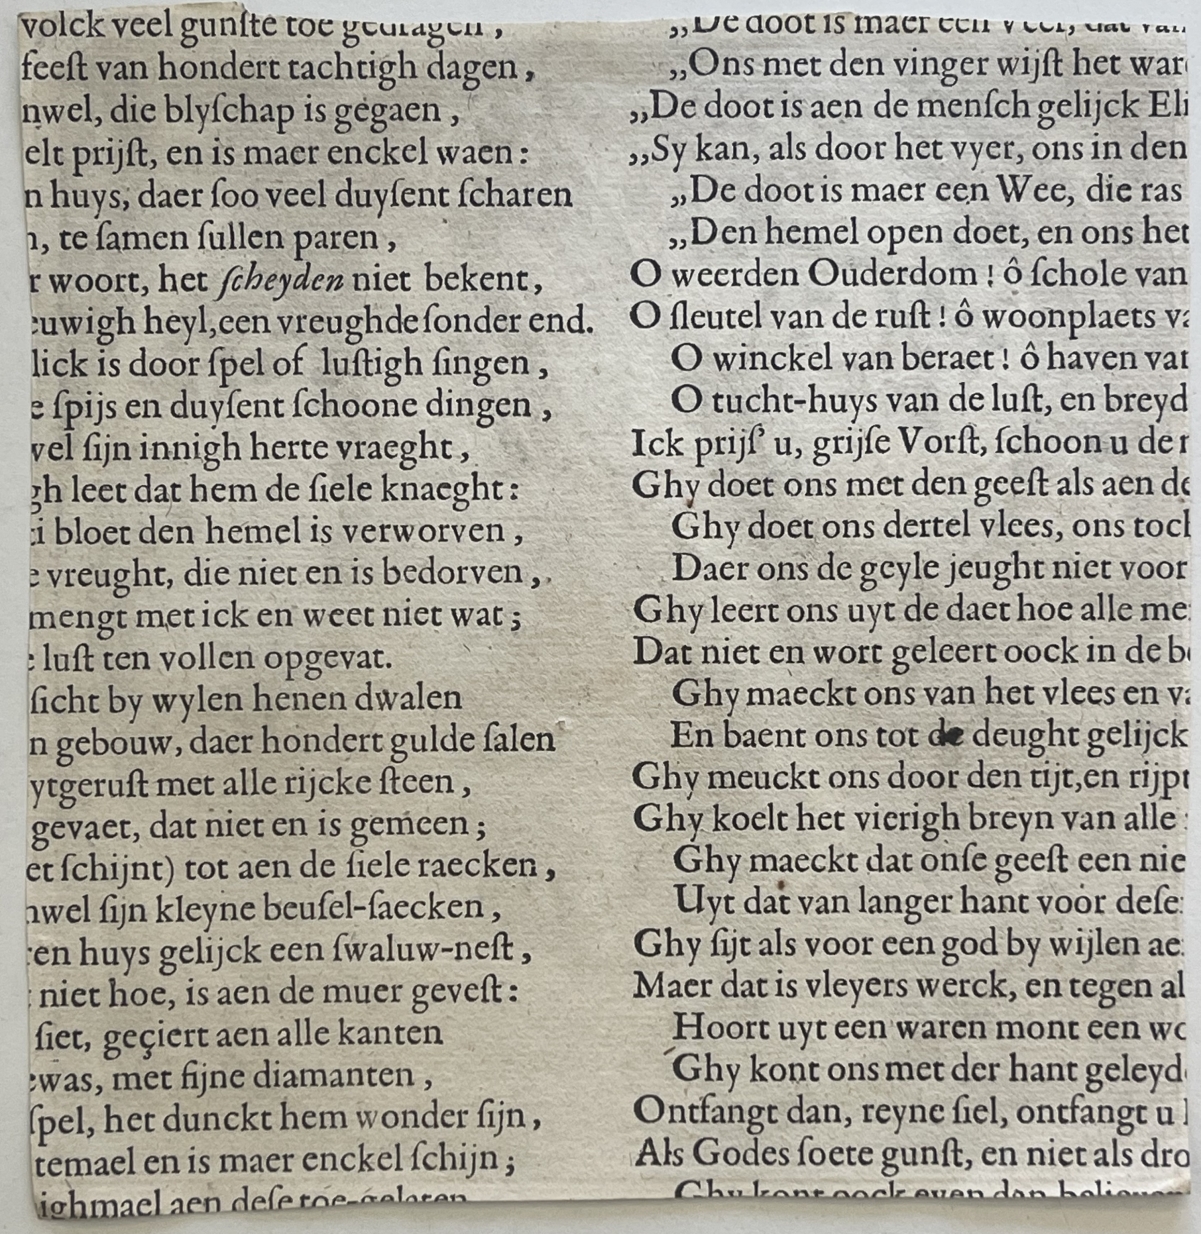 volck veel gunſte toe gedragen,
feeſt van hondert tachtigh dagen,
nwel, die blyſchap is gegaen,
elt prijſt, en is maer enckel waen:
n huys, daer ſoo veel duyſent ſcharen
, te ſamen ſullen paren,
r woort, het ſcheyden niet bekent,
euwigh heyl,een vreughde ſonder end.
lick is door ſpel of luſtigh ſingen,
e ſpijs en duyſent ſchoone dingen,
vel ſijn innigh herte vraeght,
gh leet dat hem de ſiele knaeght:
i bloet den hemel is verworven,
e vreught, die niet en is bedorven,
mengt met ick en weet niet wat;
luſt ten vollen opgevat.
ſicht by wylen henen dwalen
n gebouw, daer hondert gulde ſalen
ytgeruſt met alle rijcke ſteen,
gevaet, dat niet en is gemeen;
et ſchijnt) tot aen de ſiele raecken,
nwel ſijn kleyne beuſel-ſaecken,
en huys gelijck een ſwaluw-neſt,
niet hoe, is aen de muer geveſt:
ſiet, geçiert aen alle kanten
was, met fijne diamanten,
ſpel, het dunckt hem wonder fijn,
temael en is maer enckel ſchijn;
ighmael aen deſe toe-gelaten
„De doot is maer een Veer, dat van
„Ons met den vinger wijſt het war
„De doot is aen de menſch gelijck Eli
„Sy kan, als door het vyer, ons in den
„De doot is maer een Wee, die ras
„Den hemel open doet, en ons het
O weerden Ouderdom! ô ſchole van
O ſleutel van de ruſt! ô woonplaets va
O winckel van beraet! ô haven van
O tucht-huys van de luſt, en breyd
Ick prijſ' u, grijſe Vorſt, ſchoon u de
Ghy doet ons met den geeſt als aen de
Ghy doet ons dertel vlees, ons toc
Daer ons de geyle jeught niet voor
Ghy leert ons uyt de daet hoe alle me
Dat niet en wort geleert oock in de b
Ghy maeckt ons van het vlees en va
En baent ons tot de deught gelijck
Ghy meuckt ons door den tijt,en rijpt
Ghy koelt het vierigh breyn van alle
Ghy maeckt dat onſe geeſt een nie
Uyt dat van langer hant voor deſe
Ghy ſijt als voor een god by wijlen ae
Maer dat is vleyers werck, en tegen al
Hoort uyt een waren mont een wo
Ghy kont ons met der hant geleyd
Ontfangt dan, reyne ſiel, ontfangt u
Als Godes ſoete gunſt, en niet als dro
Ghy kont oock even dan